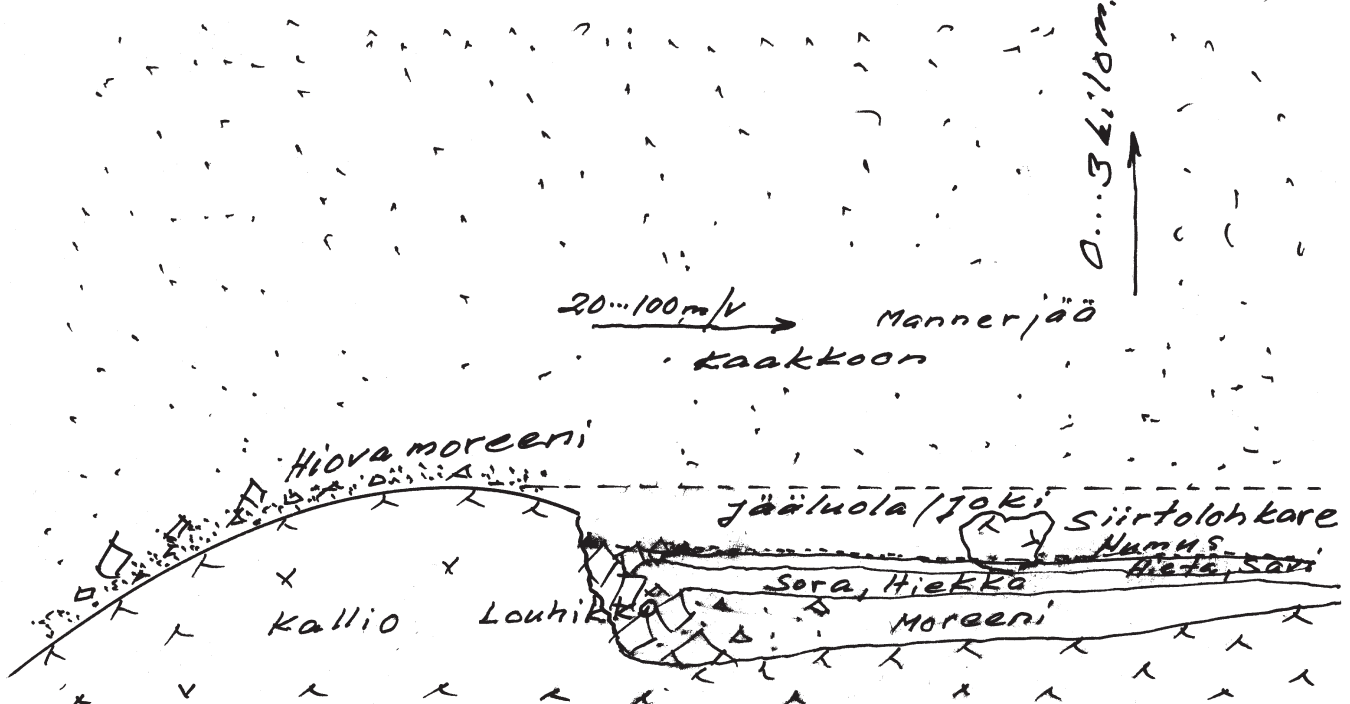 0...3 kilom.
20...100 m/v
Mannerjää
Kaakkoon
Hiova moreeni
Jääluola/Joki
Siirtolohkare
Humus
Hieta, Savi
Sora, Hiekka
Kallio
Louhikko
Moreeni